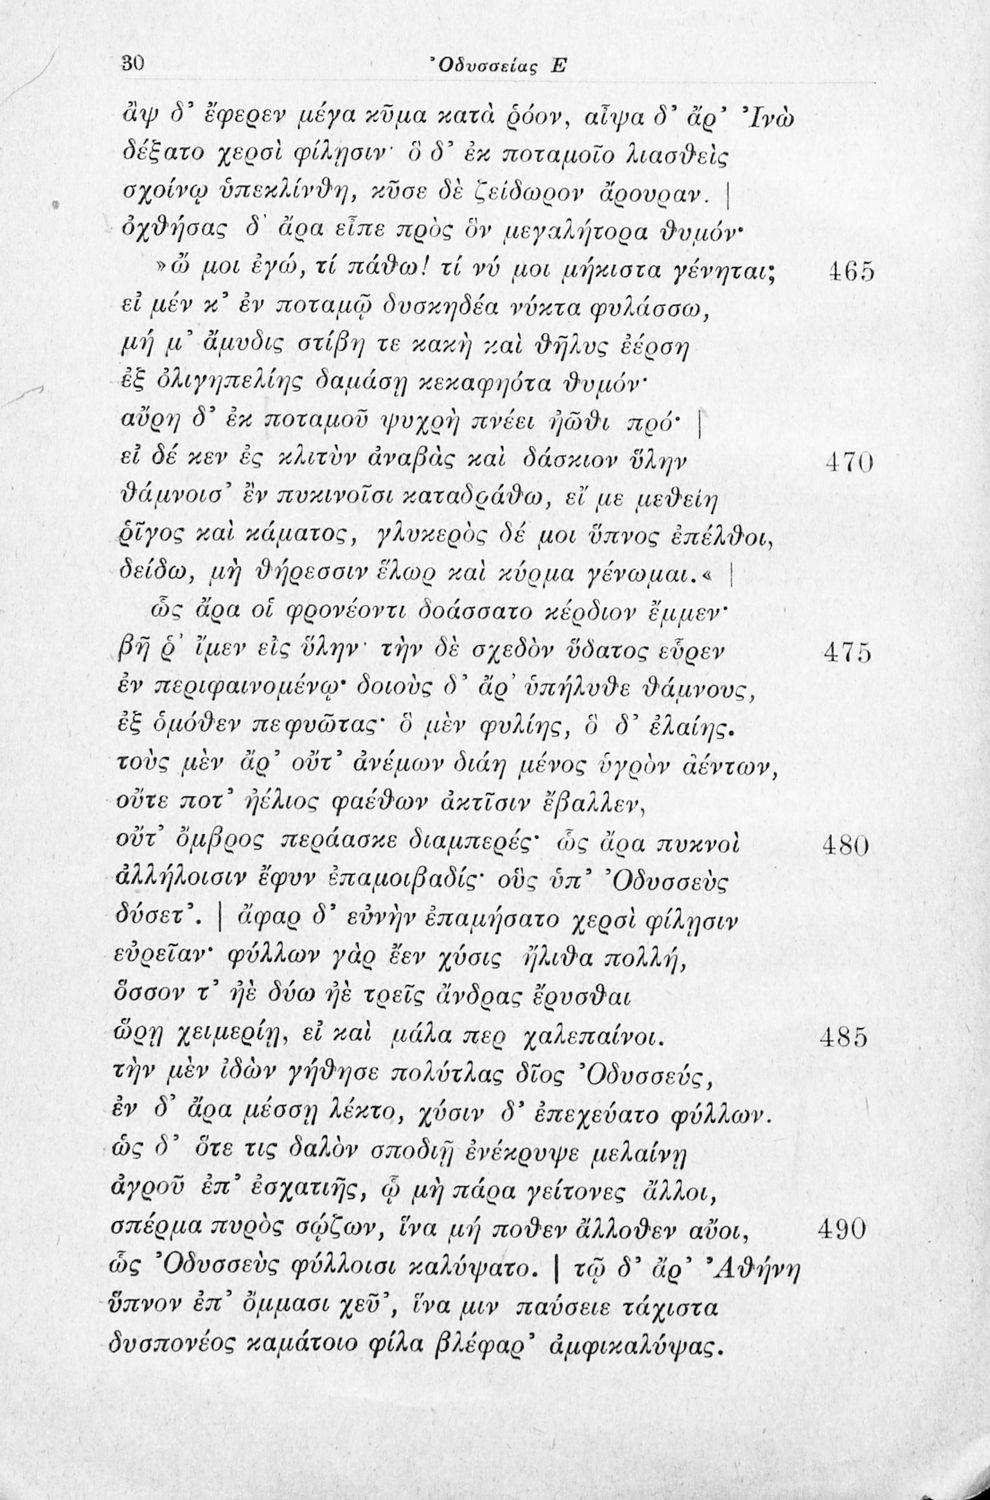 30 Ὀδυσσείας Ε
ἂψ δ’ ἔφερεν μέγα κῦμα κατὰ ῥόον, αἶψα δ’ ἄρ’ Ἰνὼ
δέξατο χερσὶ φίλῃσιν· ὃ δ’ ἐκ ποταμοῖο λιασθεὶς
σχοίνῳ ὑπεκλίνθη, κῦσε δὲ ζείδωρον ἄρουραν. |
ὀχθήσας δ’ ἄρα εἶπε πρὸς ὃν μεγαλήτορα θυμόν·
»ὤ μοι ἐγώ, τί πάθω! τί νύ μοι μήκιστα γένηται; 465
εἰ μέν κ’ ἐν ποταμῷ δυσκηδέα νύκτα φυλάσσω,
μή μ’ ἄμυδις στίβη τε κακὴ καὶ θῆλυς ἐέρση
ἐξ ὀλιγηπελίης δαμάσῃ κεκαφηότα θυμόν·
αὔρη δ’ ἐκ ποταμοῦ ψυχρὴ πνέει ἠῶθι πρό· |
εἰ δέ κεν ἐς κλιτὺν ἀναβὰς καὶ δάσκιον ὕλην 470
θάμνοισ’ ἐν πυκινοῖσι καταδράθω, εἴ με μεθείη
ῥῖγος καὶ κάματος, γλυκερὸς δέ μοι ὕπνος ἐπέλθοι,
δείδω, μὴ θήρεσσιν ἕλωρ καὶ κύρμα γένωμαι.« |
ὣς ἄρα οἱ φρονέοντι δοάσσατο κέρδιον ἔμμεν·
βῆ ῥ’ ἴμεν εἰς ὕλην· τὴν δὲ σχεδὸν ὕδατος εὗρεν 475
ἐν περιφαινομένῳ· δοιοὺς δ’ ἄρ’ ὑπήλυθε θάμνους,
ἐξ ὁμόθεν πεφυῶτας· ὃ μὲν φυλίης, ὃ δ’ ἐλαίης.
τοὺς μὲν ἄρ’ οὔτ’ ἀνέμων διάη μένος ὑγρὸν ἀέντων,
οὔτε ποτ’ ἠέλιος φαέθων ἀκτῖσιν ἔβαλλεν,
οὔτ’ ὄμβρος περάασκε διαμπερές· ὣς ἄρα πυκνοὶ 480
ἀλλήλοισιν ἔφυν ἐπαμοιβαδίς· οὓς ὑπ’ Ὀδυσσεὺς
δύσετ’. | ἄφαρ δ’ εὐνὴν ἐπαμήσατο χερσὶ φίλῃσιν
εὐρεῖαν· φύλλων γὰρ ἔεν χύσις ἤλιθα πολλή,
ὅσσον τ’ ἠὲ δύω ἠὲ τρεῖς ἄνδρας ἔρυσθαι
ὥρῃ χειμερίῃ, εἰ καὶ μάλα περ χαλεπαίνοι. 485
τὴν μὲν ἰδὼν γήθησε πολύτλας δῖος Ὀδυσσεύς,
ἐν δ’ ἄρα μέσσῃ λέκτο, χύσιν δ’ ἐπεχεύατο φύλλων.
ὡς δ’ ὅτε τις δαλὸν σποδιῇ ἐνέκρυψε μελαίνῃ
ἀγροῦ ἐπ’ ἐσχατιῆς, ᾧ μὴ πάρα γείτονες ἄλλοι,
σπέρμα πυρὸς σῴζων, ἵνα μή ποθεν ἄλλοθεν αὔοι, 490
ὣς Ὀδυσσεὺς φύλλοισι καλύψατο. | τῷ δ’ ἄρ’ Ἀθήνη
ὕπνον ἐπ’ ὄμμασι χεῦ’, ἵνα μιν παύσειε τάχιστα
δυσπονέος καμάτοιο φίλα βλέφαρ’ ἀμφικαλύψας.